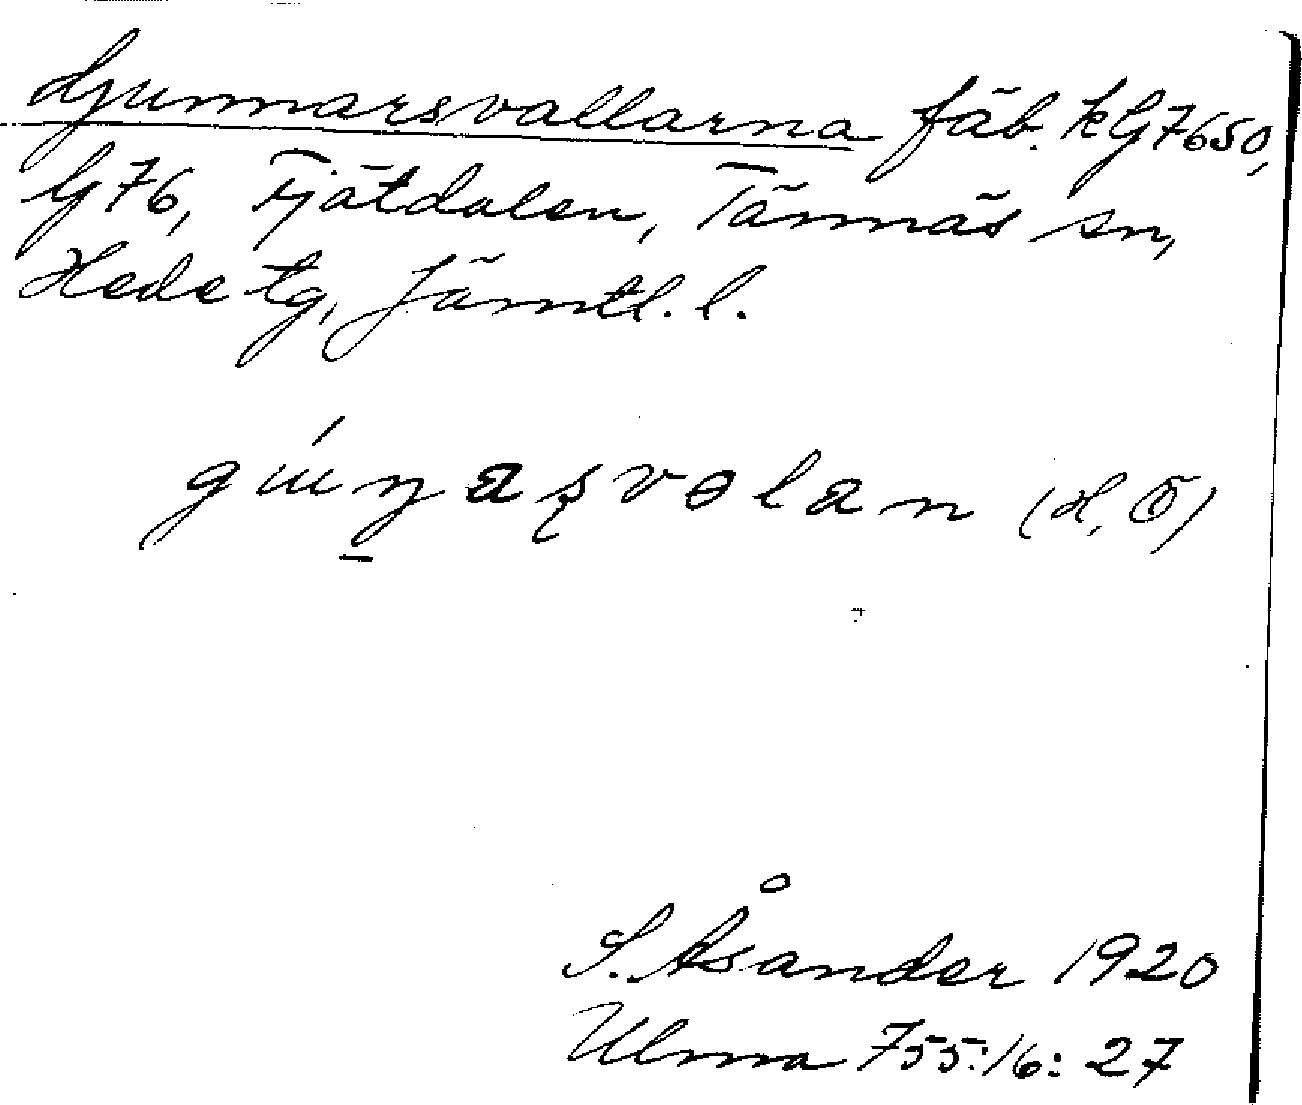 Gunnarsvallarna fäb. kG7650,
G76, Fjätdalen, Tännäs sn,
Hede tg, Jämtl. l.
gúṉaṣvolan (H, Ö)
S. Åsander 1920
Ulma 755:16: 27